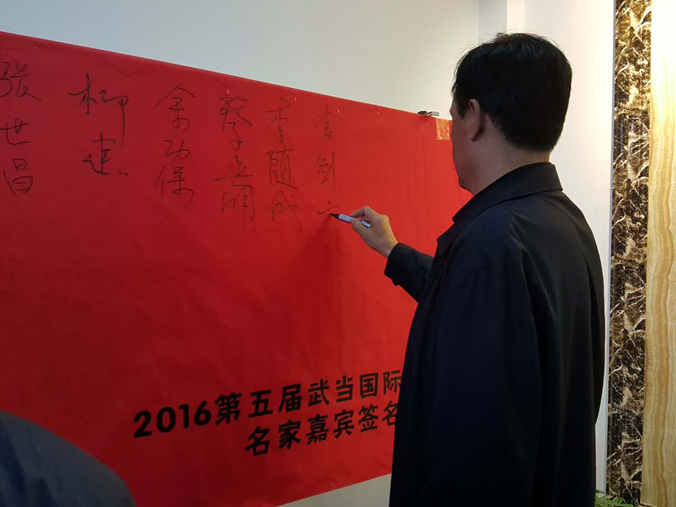 张世昌
柳建
余功保
蔡玉明
李随成
李剑
2016第五届武当国际
名家嘉宾签名